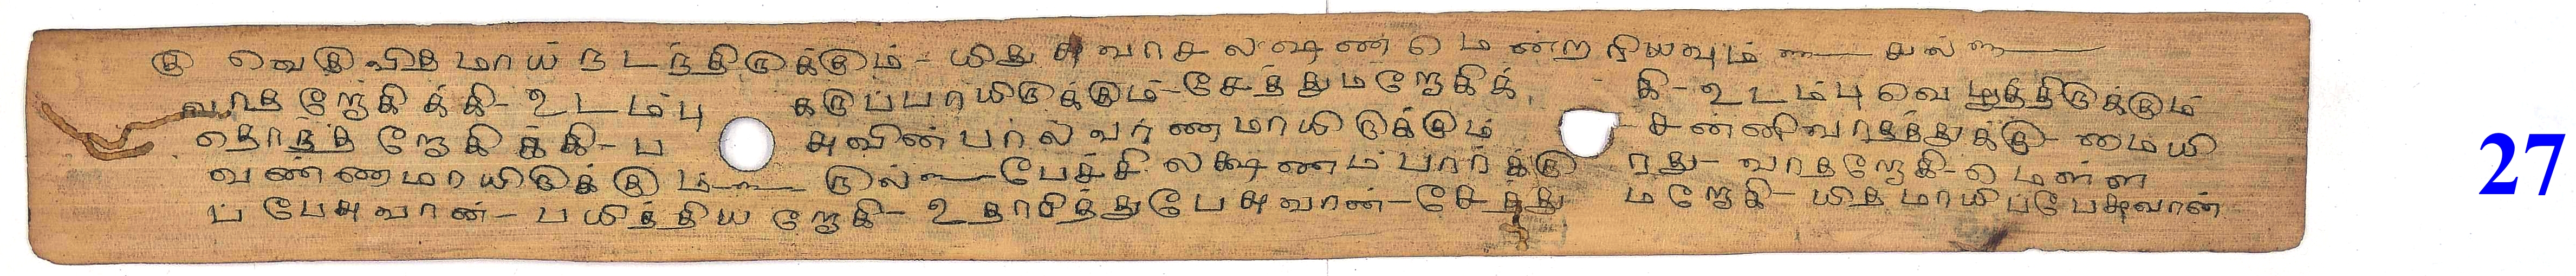 கு வெகுவிதமாய் நடந்திருக்கும் - யிது சுவாச லக்ஷணமென்றறியவும்
வாதறோகிக்கி - உடம்பு கருப்பாயிருக்கும் - சேத்துமறோகிக்கி - உடம்பு வெழுத்திருக்கும்
தொந்த றோகிக்கி - பசுவின்பால் வர்ணமாயிருக்கும் - சன்னிவாதத்துக்கு - மையி
வண்ணமாயிருக்கும் பேச்சி லக்ஷணம் பார்க்குறது - வாதறோகி - மெள்ள
ப் பேசுவான் - பயித்திய றோகி - உதாசித்து பேசுவான் - சேத்துமறோகி - யிதமாயிப்பேசுவான்
27